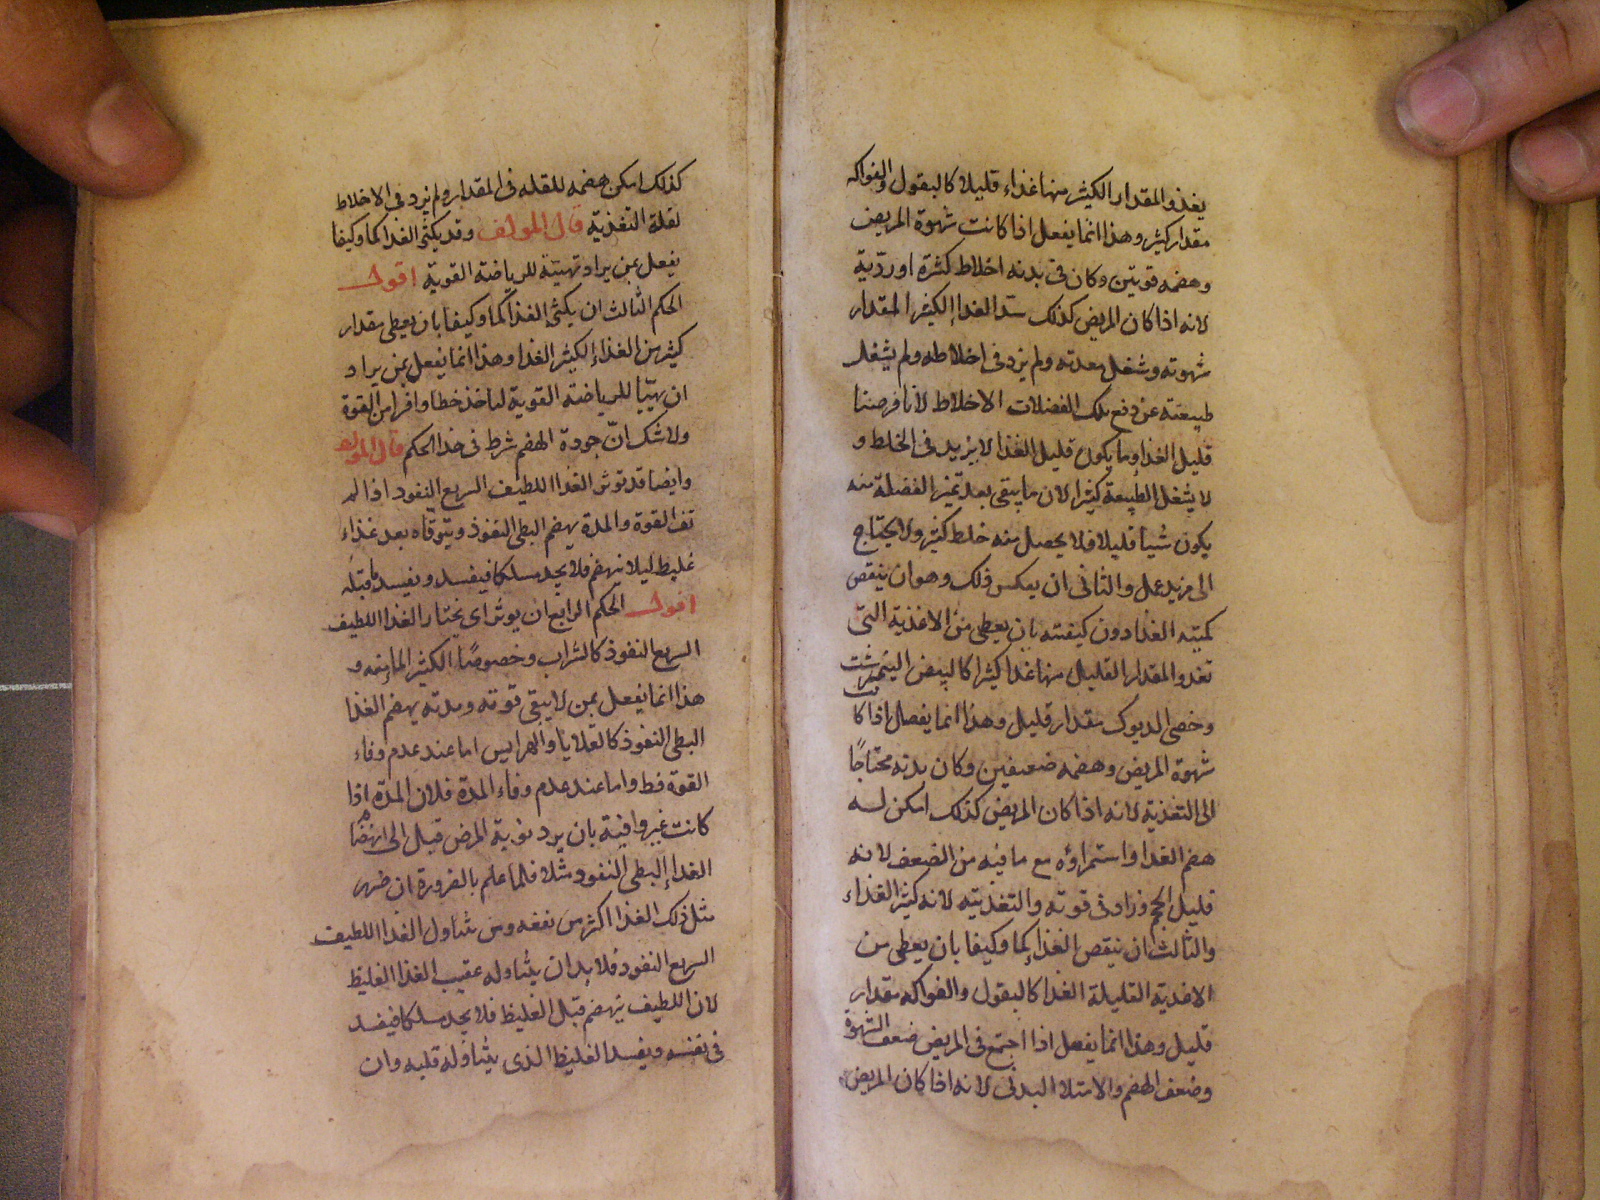 يغذو المقدار الكثير منها غذاء قليلا كالبقول والفواكه
مقدار كثير وهذا انما يفعل اذا كانت شهوة المريض
وهضمه قويتين وكان فى بدنه اخلاط كثرة او رديّة
لانه اذا كان المريض كذلك سدّ الغذاا الكثير المقدار
شهوته وشغل معدته ولم يزد فى اخلاطه ولم يشغل
طبيعته عن دفع تلك الفضلات الاخلاط لأنا فرضنا
قليل الغذا وما يكون قليل الغذا لا يزيد فى الخلط و
لا يشغل الطبيعة كثيرا لان ما يبقى بعد تميز الفضلة منه
يكون شيا قليلا فلا يحصل منه خلط كثير ولا يحتاج
الى مزيد عمل والثانى ان يعكس ذلك وهو ان ينقص
كميته الغذا دون كيفيته بان يعطى من الاغذية التى
تغذو المقدار القليل منها غذا كثيرا كالبيض النيمرشت
وخصى الديوك بمقدار قليل وهذا انما يفعل اذا كانت
شهوة المريض وهضمه ضعيفين وكان بدنه محتاجًا
الى التغذية لانه اذا كان المريض كذلك امكن له
هضم الغذا واستمراؤه مع ما فيه من الضعف لانه
قليل الحجم وزاد فى قوته والتغذيته لانه كثير الغذاء
والثالث ان ينقص الغذا كما وكيفا بان يعطى من
الاغذية القليلة الغذا كالبقول والفواكه بمقدار
قليل وهذا انما يفعل اذا اجتمع فى المريض ضعف الشهوة
وضعف الهضم والامتلا البدنى لانه اذا كان المريض
كذلك امكن هضمه للقله فى المقدار ولم يزد فى الاخلاط
لقلة التغذية قال المولف وقد يكثر الغذا كما وكيفا
يفعل بمن يراد تهيئة للرياضة القوية اقول
الحكم الثالث ان يكثر الغذا كما وكيفا بان يعطى مقدار
كثير من الغذاء الكثير الغذا وهذا انما يفعل بمن يراد
ان يهيّا للرياضة القوية لياخذ خطا وافرا من القوة
ولا شك انّ جودة الهضم شرط فى هذا الحكم قال المولف
وايضا قد توثر الغذاا اللطيف السريع النفود اذا لم
تف القوة والمدة بهضم البطى النفوذ ويتوقاه بعد غذاء
غليظ ليلا ينهضم فلا يجد مسلكا فيفسد ويفسد ما قبله
اقول الحكم الرابع ان يوثر اى يختار الغذا اللطيف
السريع النفوذ كالشراب وخصوصًا الكثير المايته و
هذا انما يفعل بمن لا يبقى قوته ومدته بهضم الغذا
البطى النفوذ كالقلايا والهرايس اما عند عدم وفاء
القوة فط واما عند عدم وفاء المدة فلان المدة اذا
كانت غير وافية بان يرد نوبة المرض قبل الى انهضا
الغذاء البطى النفود مثلا فلما علم بالضرورة ان ضرر
مثل ذلك الغذا اكثر من نفعه ومن تناول الغذا اللطيف
السريع النفود فلا بد ان يتناوله عقيب الغذا الغليظ
لان اللطيف ينهضم قبل الغليظ فلا يجد مسلكا فيفسد
فى نفسه ويفسد الغليظ الذى يتناوله قلبه وان